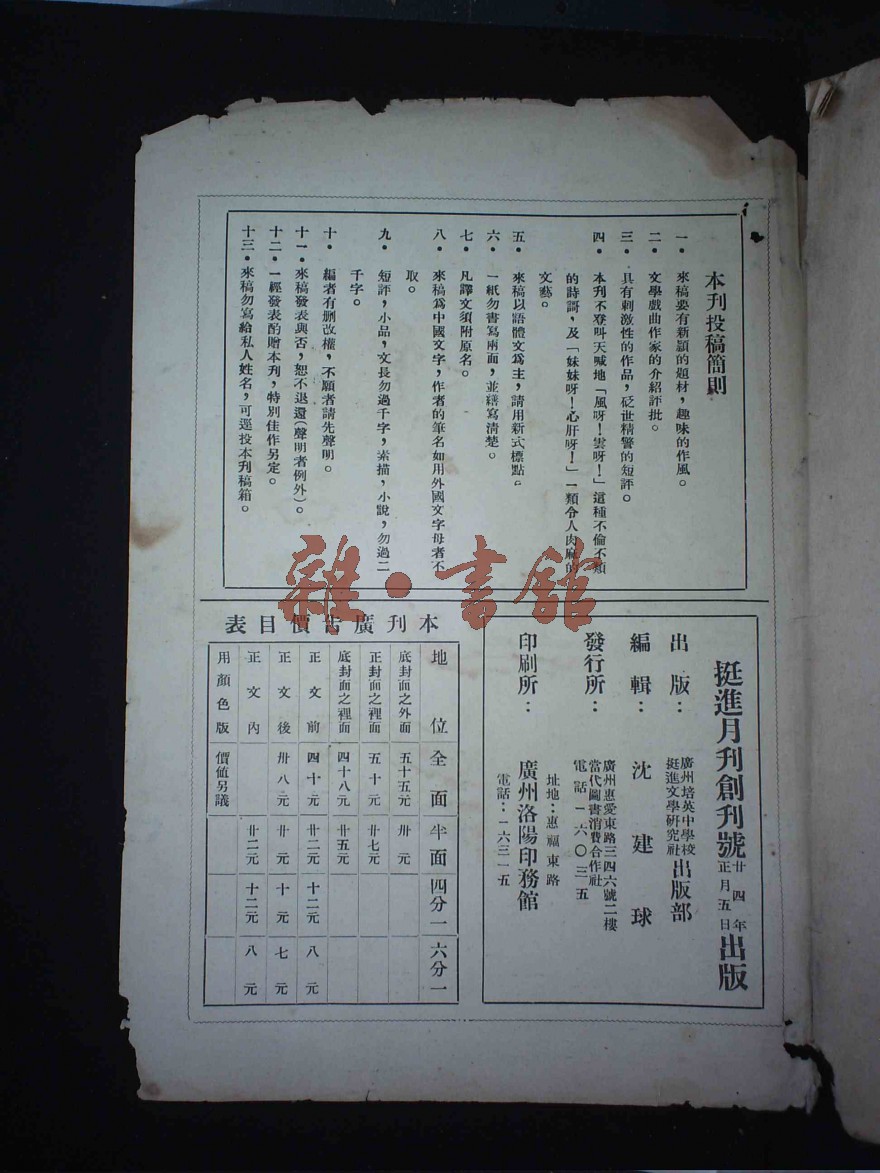 本刊投稿簡則
一・來稿要有新頴的題材，趣味的作風。
二・文學戲曲作家的介紹評批。
三・具有刺激性的作品，砭世精警的短評。
四・本刊不登叫天喊地「風呀！雲呀！」這種不倫不類
的詩哥，及「妹妹呀！心肝呀！」一類令人肉麻的
文藝。
五・來稿以語體文爲主，請用新式標點。
六・一紙勿書寫兩面，並繕寫清楚。
七・凡譯文須附原名。
八・來稿爲中國文字，作者的筆名如用外國文字母者不
取。
九・短評，小品，文長勿過千字，素描，小說，勿過二
千字。
十・編者有删改權，不願者請先聲明。
十一・來稿發表與否，恕不退還（聲明者例外）。
十二・一經發表酌贈本刊，特別佳作另定。
十三・來稿勿寫給私人姓名，可逕投本刊稿箱。
雜・書館
挺進月刊創刊號 廿四年正月五日出版
出版：廣州培英中學校挺進文學研究社出版部
編輯：沈建球
發行所：廣州惠愛東路三四六號二樓
當代圖書消費合作社
電話一六〇三五
印刷所：廣州洛陽印務館
址地：惠福東路
電話：一六三一五
本刊廣告價目表
地位 全面 半面 四分一 六分一
底封面之外面 五十五元 卅元
正封面之裡面 五十元 廿七元
底封面之裡面 四十八元 廿五元
正文前 四十元 廿二元 十二元 八元
正文後 卅八元 廿元 十元 七元
正文內 廿二元 十二元 八元
用顏色版 價值另議